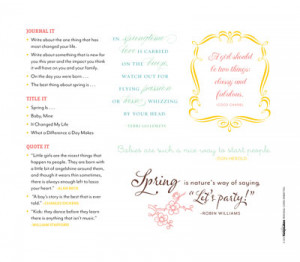 JOURNAL IT
• Write about the one thing that has
most changed your life.
• Write about something that is new for
you this year and the impact you think
it will have on you and your family.
• On the day you were born . . .
• The best thing about spring is . . .
TITLE IT
• Spring Is . . .
• Baby, Mine
• It Changed My Life
• What a Difference a Day Makes
QUOTE IT
• "Little girls are the nicest things that
happen to people. They are born with
a little bit of angelshine around them,
and though it wears thin sometimes,
there is always enough left to lasso
your heart."
• "A boy's story is the best that is ever
told."
• "Kids: they dance before they learn
there is anything that isn't music."
IN springtime
love IS CARRIED
ON THE breeze.
WATCH OUT FOR
FLYING passion
OR kisses WHIZZING
BY YOUR HEAD.
A girl should
be two things:
classy and
fabulous.
Babies are such a nice way to start people.
Spring is nature's way of saying,
"Let's party!"
—ROBIN WILLIAMS